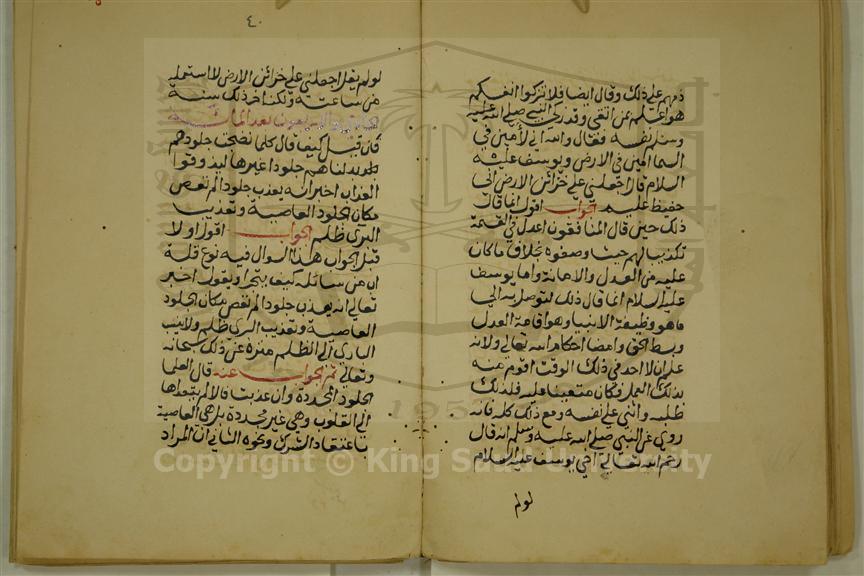 ذمهم على ذلك وقال ايضا فلا تزكوا انفسكم
هو اعلم بمن اتقى وقد زكى النبي صلى الله عليه
وسلم نفسه فقال والله اني لأمين في
السما امين في الارض ويوسف عليه
السلام قال اجعلني على خزائن الارض اني
حفيظ عليم الجواب اقول انما قال
ذلك حين قال المنافقون اعدل في القسمة
تكذيبا لهم حيث وصفوه بخلاف ما كان
عليه من العدل والامانة واما يوسف
عليه السلام انما قال ذلك لتوصل به الى
ما هو وظيفة الانبيا وهو اقامة العدل
وبسط الحق وامضا احكام الله تعالى ولانه
علم ان لا احد في ذلك الوقت اقوم منه
بذلك العمل فكان متعينا عليه فلذلك
طلبه واثنى على نفسه ومع ذلك كله فانه
روي عن النبي صلى الله عليه وسلم انه قال
رحم الله تعالى اخي يوسف عليه السلام
لو لم
٤٠
لو لم يقل اجعلني على خزائن الارض لاستعمله
من ساعته ولكنه اخر ذلك سنة
والاربعون بعد المائة
فان قيل كيف قال كلما نضجت جلودهم
بدلناهم جلودا غيرها ليذوقوا
العذاب اخبر انه يعذب جلودا لم تعص
مكان الجلود العاصية وتعذيب
البرى ظلم الجواب اقول اولا
قبل الجواب هذا السوال فيه نوع قلة
من سائله كيف يقول اخبر
تعالى انه يعذب جلودا لم تعص مكان الجلود
العاصية وتعذيب البرى ظلم ولا ينسب
الباري الى الظلم منزه عن ذلك سبحانه
وتعالى ثم الجواب عنه قال العلما
الجلود المجددة وان عذبت فالالم بتعداها
الى القلوب وهي غير مجددة بل هي العاصية
باعتقاد الشرك ونحوه الثاني ان المراد
Copyright © King Saud University